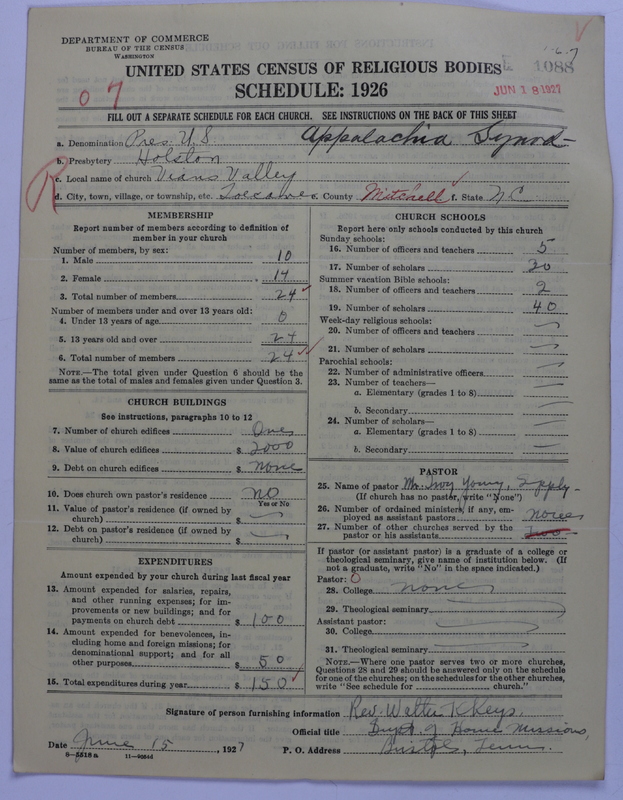 DEPARTMENT OF COMMERCE
BUREAU OF THE CENSUS
WASHINGTON
1088
UNITED STATES CENSUS OF RELIGIOUS BODIES
SCHEDULE: 1926
JUN 18 1927
07
FILL OUT A SEPARATE SCHEDULE FOR EACH CHURCH. SEE INSTRUCTIONS ON THE BACK OF THIS SHEET
a. Denomination Pres. U.S. Appalachia Synod
b. Presbytery Holston
c. Local name of church Valley
R
d. City, town, village, or township, etc. Toecane e. County Mitchell f. State N.C.
MEMBERSHIP
Report number of members according to definition of
member in your church
Number of members, by sex:
1. Male 10
2. Female 14
3. Total number of members 24
Number of members under and over 13 years old:
4. Under 13 years of age 0
5. 13 years old and over 24
6. Total number of members 24
NOTE.—The total given under Question 6 should be
same as the total of males and females given under Question 3.
CHURCH BUILDINGS
See instructions, paragraphs 10 to 12
7. Number of church edifices One
8. Value of church edifices $ 2000
9. Debt on church edifices $ None
10. Does church own pastor's residence NO
Yes or No
11. Value of pastor's residence (if owned by
church) $
12. Debt on pastor's residence (if owned by
church) $
EXPENDITURES
Amount expended by your church during last fiscal year
13. Amount expended for salaries, repairs,
and other running expenses; for im-
provements or new buildings; and for
payments on church debt $ 100
14. Amount expended for benevolences, in-
cluding home and foreign missions; for
denominational support; and for all
other purposes $ 50
15. Total expenditures during year $ 150
CHURCH SCHOOLS
Report here only schools conducted by this church
Sunday schools:
16. Number of officers and teachers 5
17. Number of scholars 30
Summer vacation Bible schools:
18. Number of officers and teachers 2
19. Number of scholars 40
Week-day religious schools:
20. Number of officers and teachers
21. Number of scholars
Parochial schools:
22. Number of administrative officers
23. Number of teachers—
a. Elementary (grades 1 to 8)
b. Secondary
24. Number of scholars—
a. Elementary (grades 1 to 8)
b. Secondary
PASTOR
25. Name of pastor Mr. Young, Supply
(If church has no pastor, write "None")
26. Number of ordained ministers, if any, em-
ployed as assistant pastors None
27. Number of other churches served by the
pastor or his assistants
If pastor (or assistant pastor) is a graduate of a college or
theological seminary, give name of institution below. (If
not a graduate, write "No" in the space indicated.)
Pastor: O
28. College none
29. Theological seminary
Assistant pastor:
30. College
31. Theological seminary
NOTE.—Where one pastor serves two or more churches,
Questions 28 and 29 should be answered only on the schedule
for one of the churches; on the schedules for the other churches,
write "See schedule for church."
Signature of person furnishing information Rev. Walter K Keys,
Official title Supt. of Home Missions,
Date June 15, 1927 P. O. Address Bristol, Tenn.
8—5518a